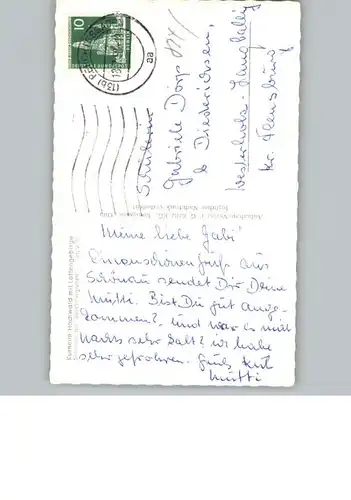 10
DEUTSCHE BUNDESPOST
(13b)
aa
Schülerin
Gabriele Dörp
b Diederichsen,
Westerholz-Langballig
Kr. Flensburg
Meine liebe Gabi!
Einen schönen Gruß aus
Schönau sendet Dir Deine
Mutti. Bist Du gut ange-
kommen? und war es nicht
nachts sehr kalt? Wir habe
sehr gefroren. Gruß Kuß
Mutti